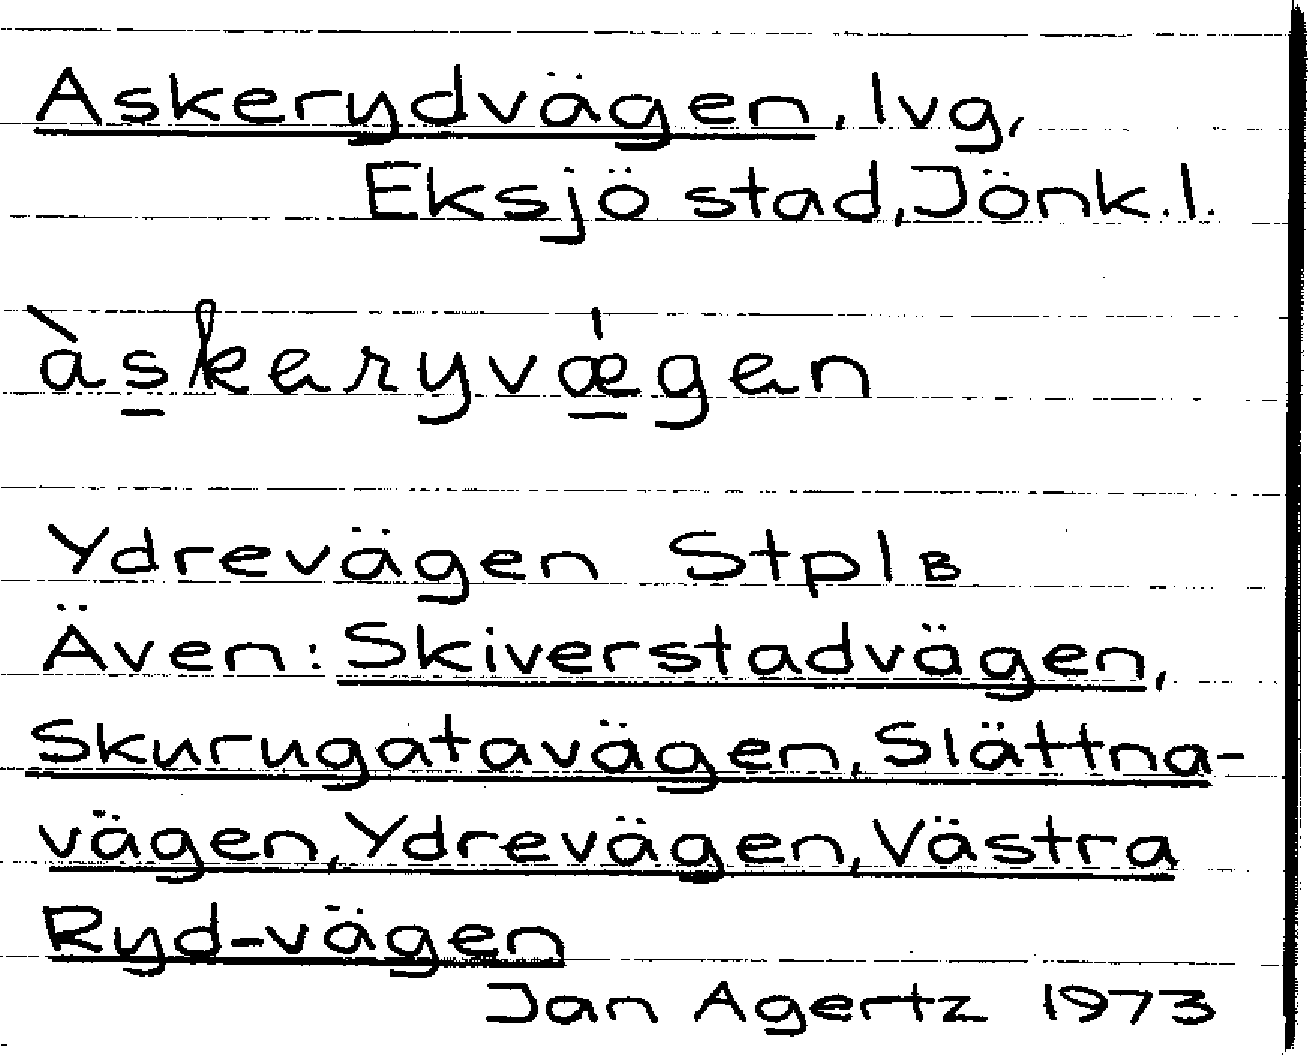 Askerydvägen, lvg,
Eksjö stad, Jönk.l.
àskeryvǽgen
Ydrevägen StplB
Även: Skiverstadvägen,
Skurugatavägen, Slättna-
vägen, Ydrevägen, Västra
Ryd-vägen
Jan Agertz 1973